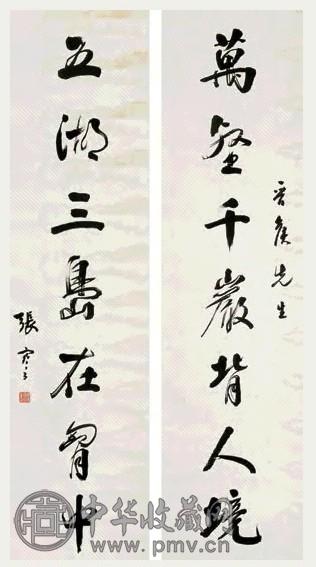 晉侯先生
萬壑千巖背人境
五湖三島在胷中
張
中华收藏网
www.pmv.cn